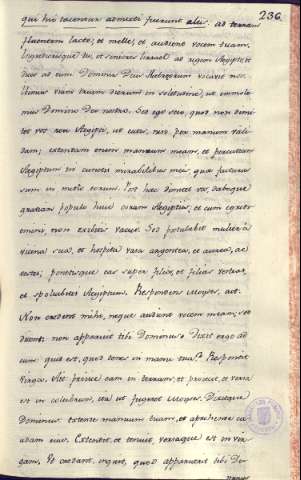 236
qui hic tacentur admixti fuerunt aliis. ad terram
fluentem lacte, et melle, et audient vocem tuam,
Ingredierisque tu, et seniores Israel ad regem Aegipti et
dices ad eum Dominus Deus Hebreorum vocavit nos
ibimus viam trium dierum in solitudine, ut immole
mus Domino Deo nostro. Sed ego scio, quod non dimitet
vos rex Aegipti, ut eatis, nisi per manum vali
dam; extendam enim manum meam, et percutiam
Aegiptum in cunctis mirabilibus meis, quæ facturus
sum in medio eorum. Post hæc dimitet vos, daboque
gratiam populo huic coram Aegiptiis, et cum egredi
emini, non exibitis vacui. Sed postulabit mulier a
vicina sua, et hospita vasa argentea, et aurea, ac
vestes, ponetisque eas super filios, et filias vestras,
et spoliabitis Aegiptum. Respondens Moyses, ait.
Non credent mihi, neque audient vocem meam, sed
dicent: non apparuit tibi Dominus. Dixit ergo ad
eum quid est, quod tenes in manu tua? Respondit
Virga. Ait proice eam in terram, et proiecit, et versa
est in colubrum, ita ut fugeret Moyses. Dixitque
Dominus extende manum tuam, et aprehende cau
dam eius. Extendit, et tenuit, versaque est in vir
gam, Ut credant, inquit, quod apparuerit tibi Do-